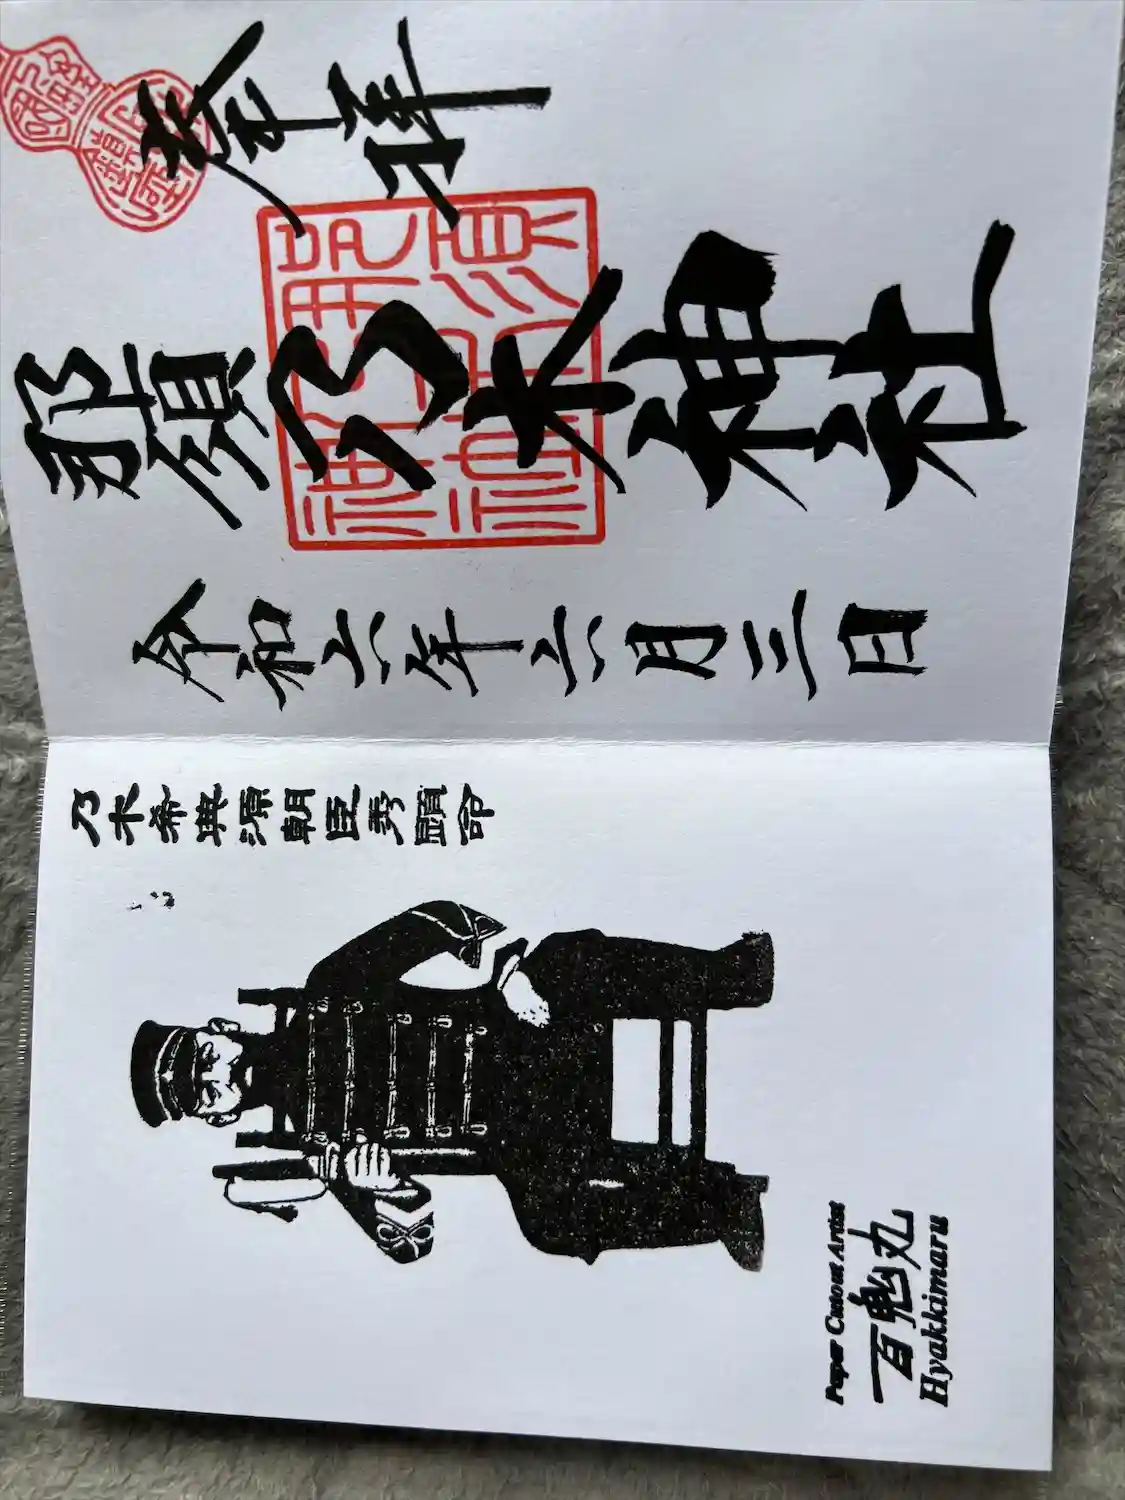 奉拝
那須乃木神社
那須
乃木
神社
令和六年六月三日
乃木希典源朝臣秀顕命
Paper Cutout Artist
百鬼丸
Hyakkimaru